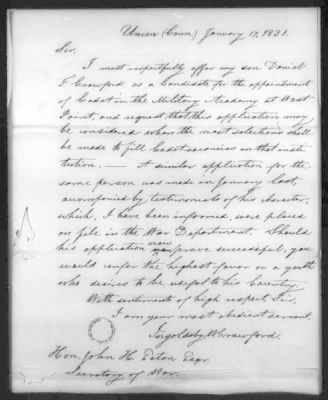 Union (Conn.) January 17, 1831.
Sir.
I most respectfully offer my son Daniel
F. Crawford as a Candidate for the appointment
of Cadet in the Military Academy at West
Point, and request that this application may
be considered when the next selections shall
be made to fill Cadet vacancies in that insti
tution. — A similar application for the
same person was made in January last,
accompanied by testimonials of his character,
which, I have been informed, were placed
on file in the War Department. Should
his application now prove successful, you
would confer the highest favor on a youth
who desires to be useful to his Country.
With sentiments of high respect, Sir,
I am your most obedient servant.
Ingoldsby W. Crawford.
Hon. John H. Eaton Esqr.
Secretary of War.